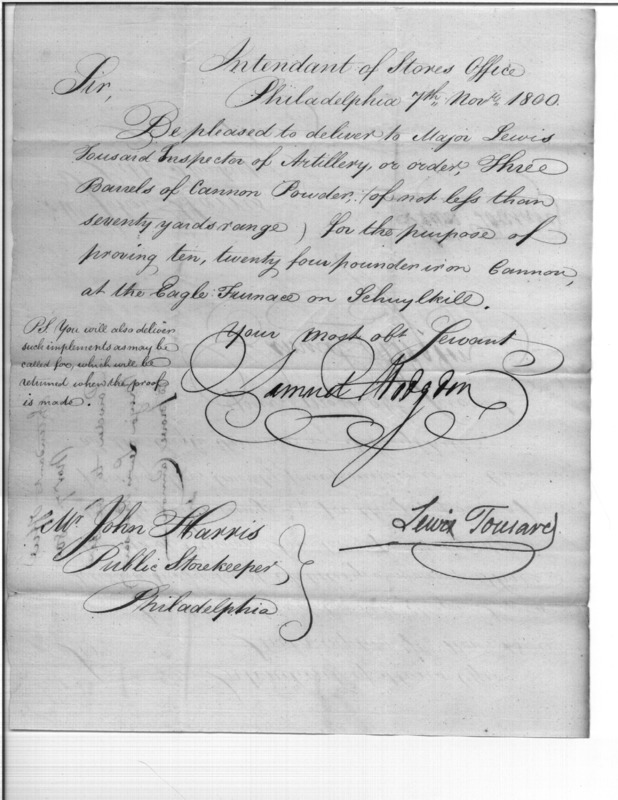 Intendant of Stores Office
Philadelphia 7th Novr. 1800.
Sir,
Be pleased to deliver to Major Lewis
Tousard Inspector of Artillery, or order, Three
Barrels of Cannon Powder, (of not less than
seventy yards range) for the purpose of
proving ten, twenty four pounder iron Cannon,
at the Eagle Furnace on Schuylkill.
Your most obt Servant
Samuel Hodgdon
PS. You will also deliver
such implements as may be
called for, which will be
returned when the proof
is made.
Lewis Tousard
Mr. John Harris
Public Storekeeper
Philadelphia